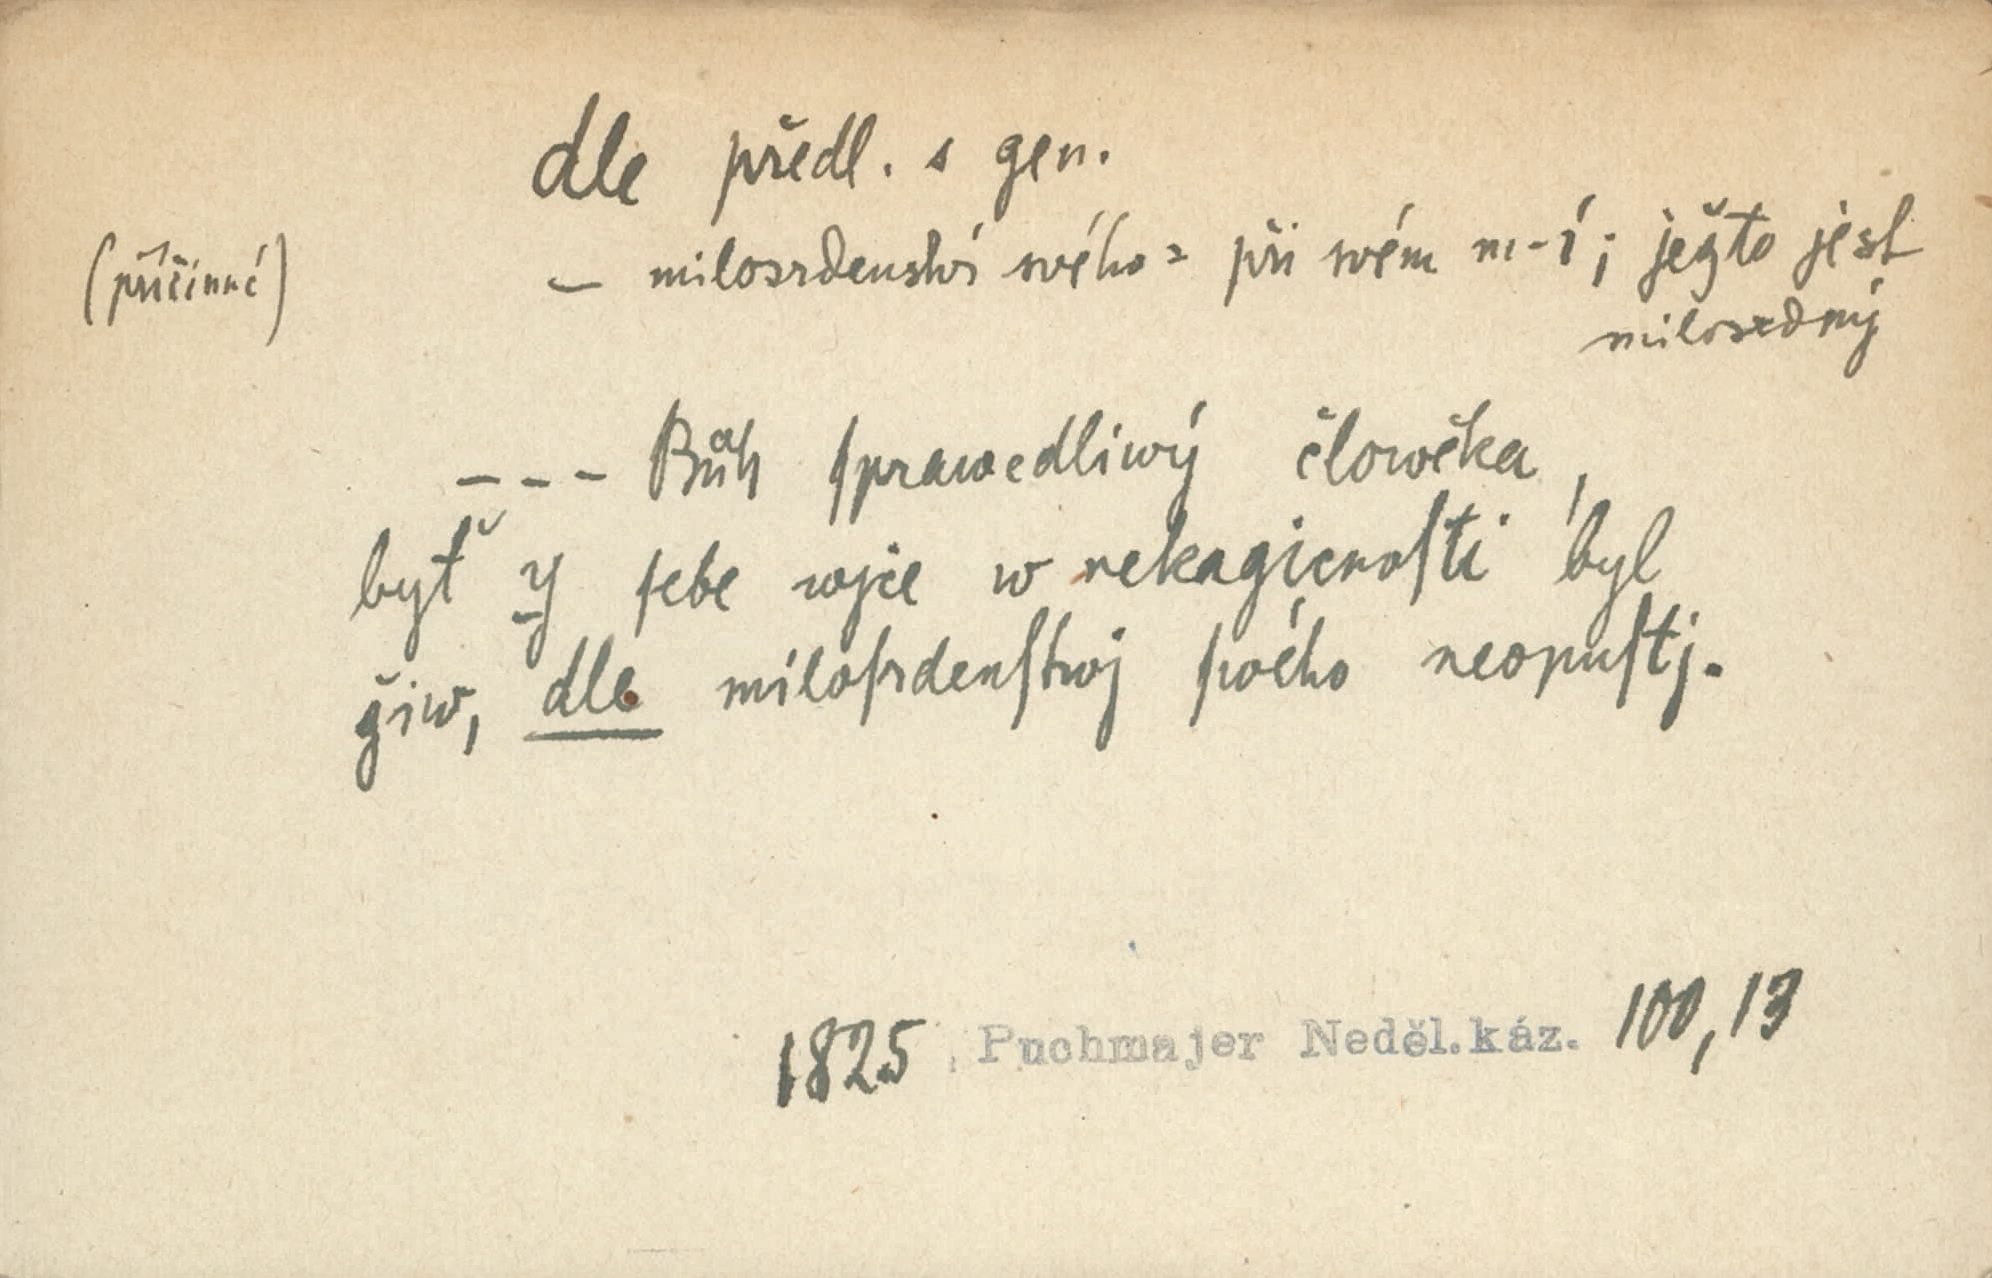 dle předl. s gen.
(příčinné) – milosrdenství svého = při svém m-í; ježto jest
milosrdný
- - - Bůh ſprawedliwý člowěka,
byť y ſebe wjce w nekagicnoſti byl
žiw, dle miloſrdenſtwj ſwého neopuſtj.
1825, Puchmajer Neděl.káz. 100,13